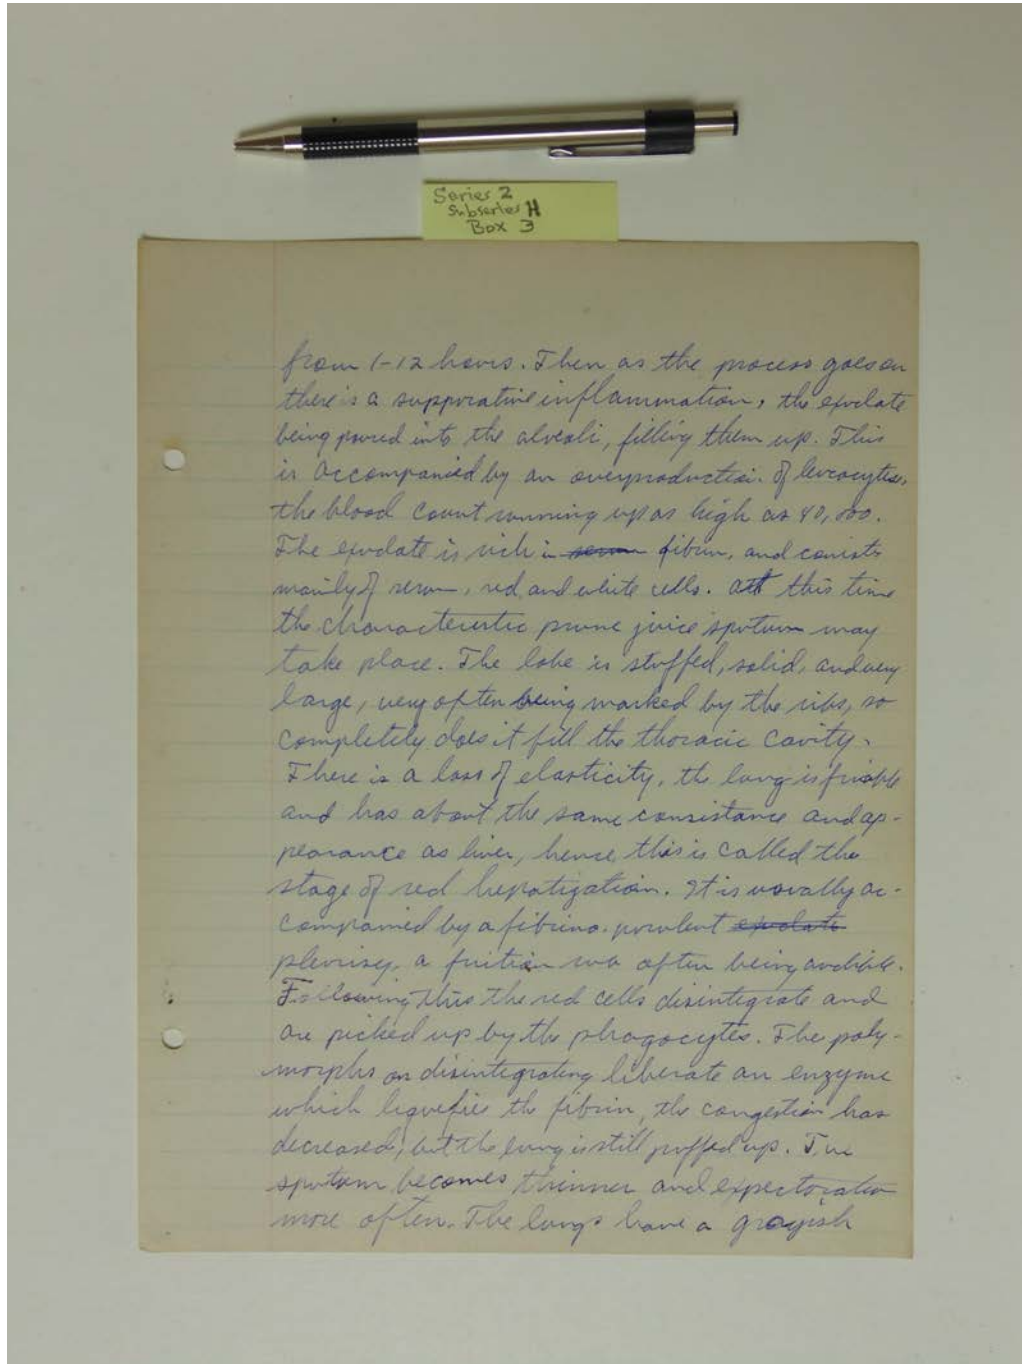 Series 2
Subseries H
Box 3
from 1-12 hours. Then as the process goes on
there is a suppurative inflammation, the exudate
being poured into the alveoli, filling them up. This
is accompanied by an overproduction of leucocytes,
the blood count running up as high as 40,000.
The exudate is rich in serum fibrin, and consists
mainly of serum, red and white cells. At this time
the characteristic prune juice sputum may
take place. The lobe is stuffed, solid, and very
large, very often being marked by the ribs, so
completely does it fill the thoracic cavity.
There is a loss of elasticity, the lung is friable
and has about the same consistance and ap-
pearance as liver, hence this is called the
stage of red hepatization. It is usually ac-
companied by a fibrino-purulent exudate
pleurisy, a friction rub often being audible.
Following this the red cells disintegrate and
are picked up by the phagocytes. The poly-
morphs on disintegrating liberate an enzyme
which liquefies the fibrin, the congestion has
decreased, but the lung is still puffed up. The
sputum becomes thinner and expectoration
more often. The lungs have a grayish